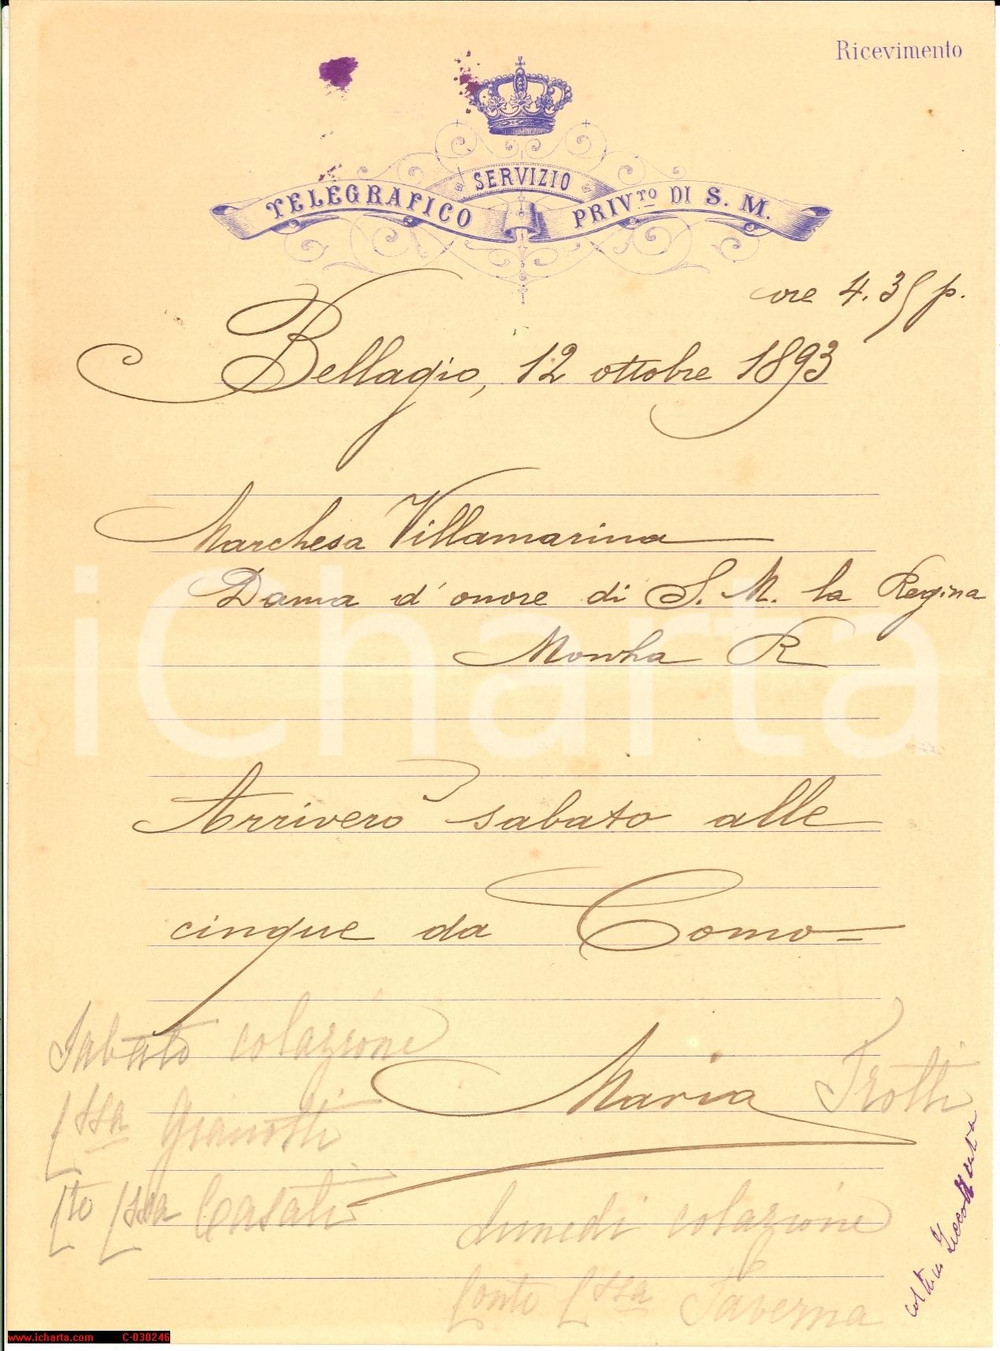 Ricevimento
SERVIZIO
TELEGRAFICO PRIV.TO DI S. M.
ore 4.35 p.
Bellagio, 12 ottobre 1893
Marchesa Villamarina
Dama d'onore di S. M. la Regina
Monza R
Arriverò sabato alle
cinque da Como
Maria Trotti
Sabato colazione
Cssa Gianotti
Cto Cssa Casati
Lunedì colazione
Conte Cssa Taverna
iCharta
www.icharta.com C-030246